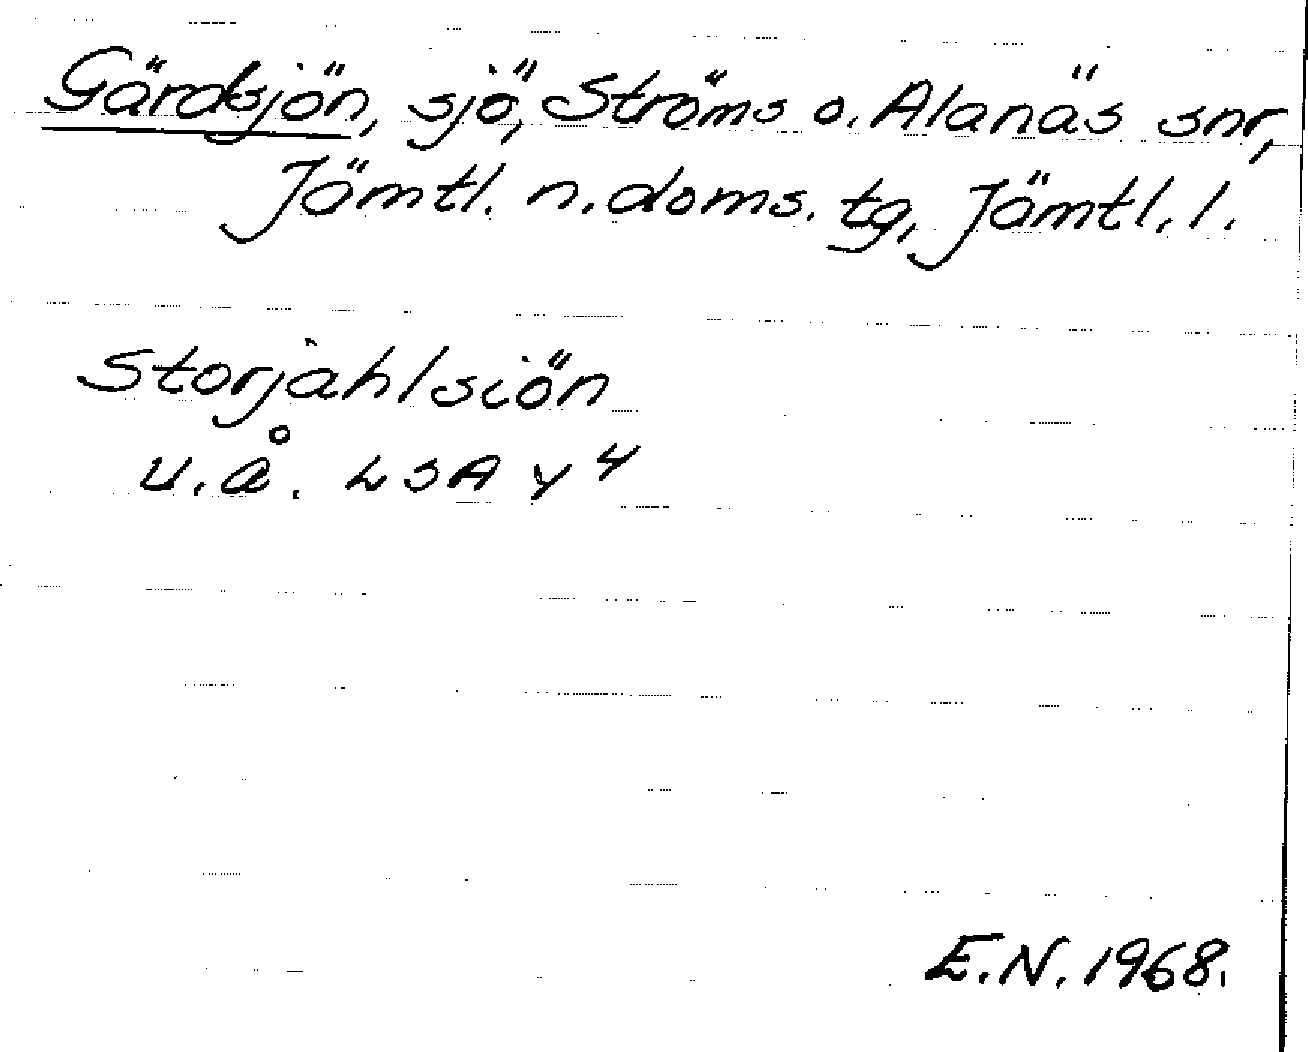 Gärdsjön, sjö, Ströms o. Alanäs snr,
Jämtl. n. doms. tg, Jämtl. l.
Storjahlsiön
u.å. LSA Y 4
E.N. 1968.